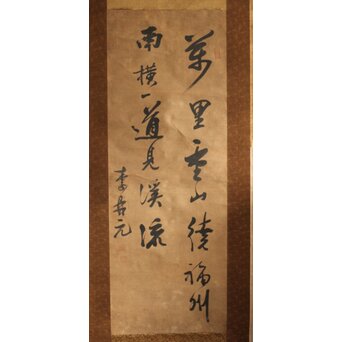 萬里雲山繞福州
南橫一道見溪流
李哲元